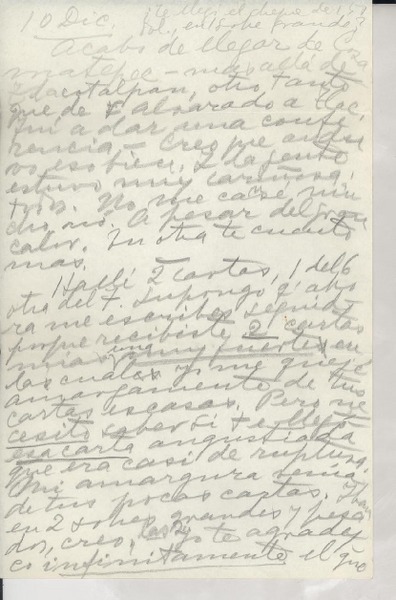 10 Dic. (Llegó el cheque de 
sol., en sobre grande)
Acabo de llegar de Co
matepec — más allá de
Tlacotalpan, otro tanto
que de Alvarado a Tlac.
Fui a dar una confe
rencia — Creo que anduvo
eso bien, y la gente
estuvo muy cariñosa,
todos. No me cansé mu
cho, no. A pesar del gran
calor. En otra te cuento
mas.
Hallé 2 cartas, 1 del 6
otra del 7. Supongo q' aho
ra me escribes seguido
porque recibiste 2 cartas
mías, una muy fuerte, en
las cuales yo me quejé
amargamente de tus
cartas escasas. Pero ne
cesito saber si te llegó
esa carta angustiada
que era casi de ruptura.
Mi amargura venía
de tus pocas cartas. Iban
en 2 sobres grandes y pesa
dos, creo, las 2. Yo te agradez
co infinitamente el que